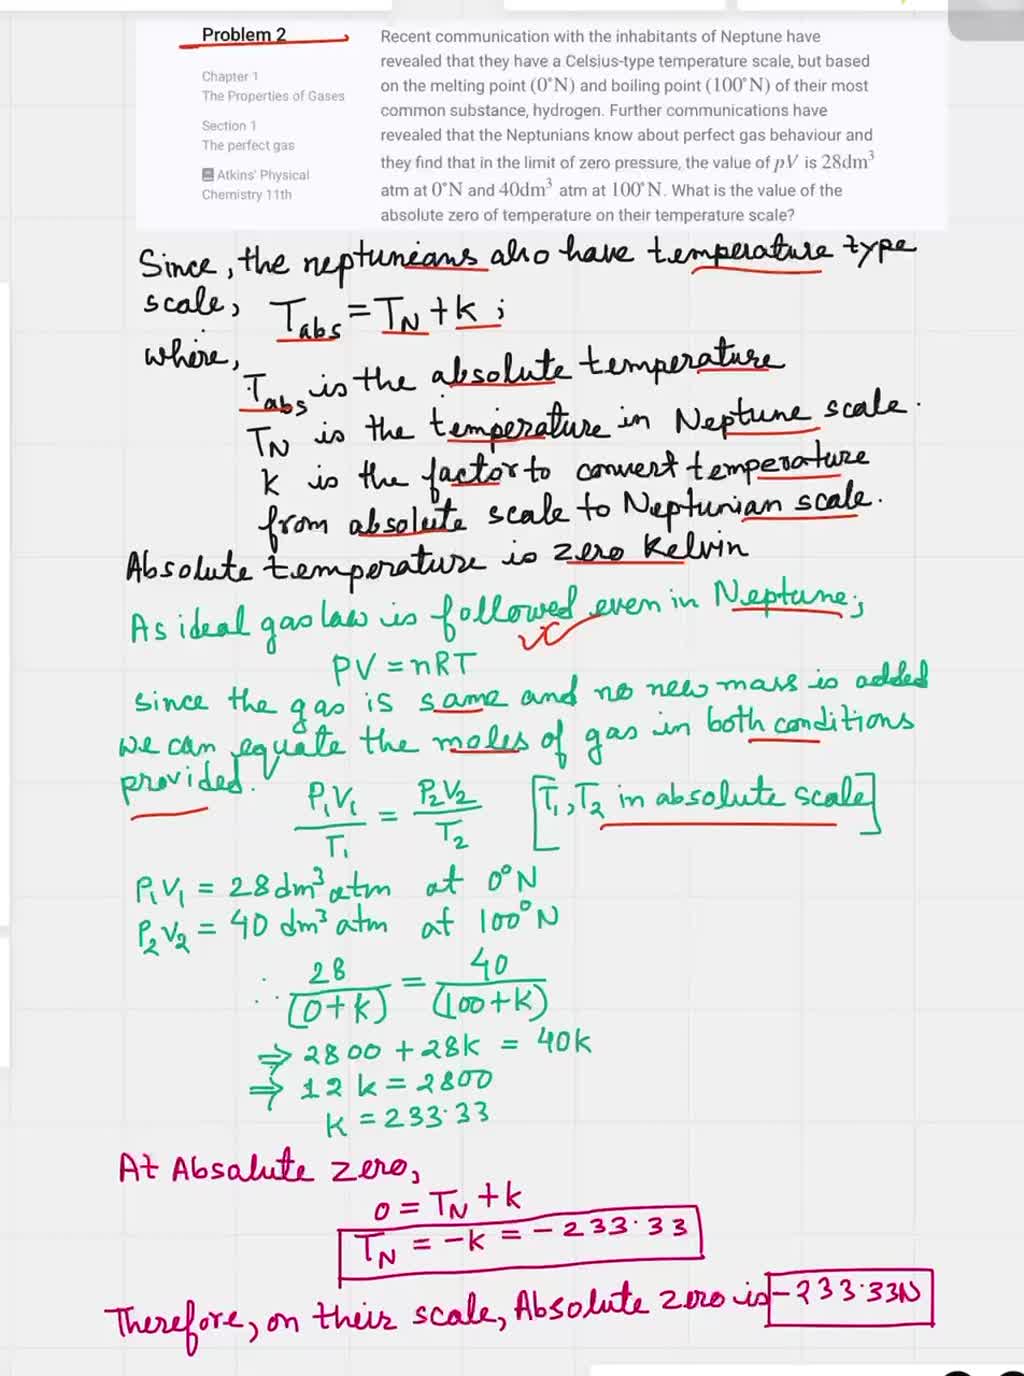 Problem 2
Chapter 1
The Properties of Gases
Section 1
The perfect gas
Atkins' Physical
Chemistry 11th
Recent communication with the inhabitants of Neptune have
revealed that they have a Celsius-type temperature scale, but based
on the melting point (0°N) and boiling point (100°N) of their most
common substance, hydrogen. Further communications have
revealed that the Neptunians know about perfect gas behaviour and
they find that in the limit of zero pressure, the value of pV is 28dm³
atm at 0°N and 40dm³ atm at 100°N. What is the value of the
absolute zero of temperature on their temperature scale?
Since, the neptunians also have temperature type
scale, T_abs = T_N + k ;
where,
T_abs is the absolute temperature
T_N is the temperature in Neptune scale.
k is the factor to convert temperature
from absolute scale to Neptunian scale.
Absolute temperature is zero Kelvin
As ideal gas law is followed even in Neptune;
PV = nRT
since the gas is same and no new mass is added
we can equate the moles of gas in both conditions
provided.
P₁V₁/T₁ = P₂V₂/T₂ [T₁, T₂ in absolute scale]
P₁V₁ = 28 dm³ atm at 0°N
P₂V₂ = 40 dm³ atm at 100°N
∴ 28/(0+k) = 40/(100+k)
⇒ 2800 + 28k = 40k
⇒ 12k = 2800
k = 233.33
At Absolute zero,
0 = T_N + k
T_N = -k = -233.33
Therefore, on their scale, Absolute zero is -233.33N